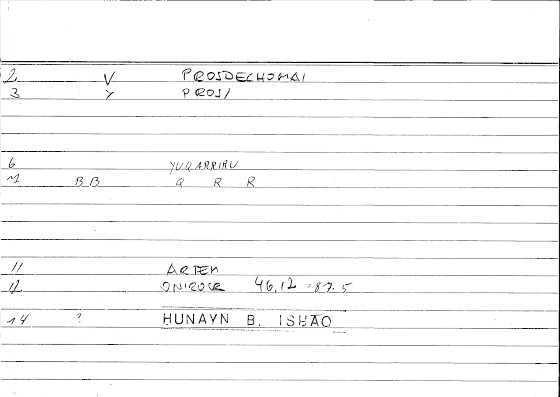 2 V PROSDECHOMAI
3 Y PROS/
6 YUQARRIRU
M BB Q R R
11 ARTEM
12 ONIROCR 46,12 = 87.5
14 ? HUNAYN B. ISHAQ